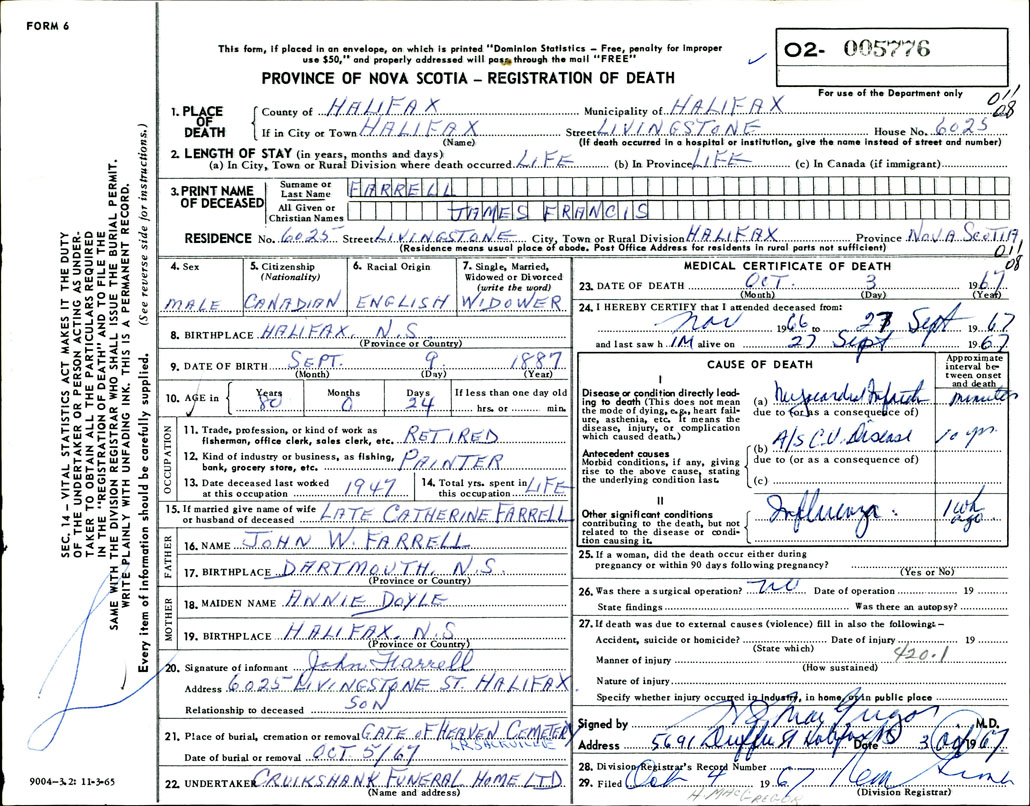 FORM 6
This form, if placed in an envelope, on which is printed "Dominion Statistics – Free, penalty for improper
use $50," and properly addressed will pass through the mail "FREE"
O2- 005776
PROVINCE OF NOVA SCOTIA – REGISTRATION OF DEATH
For use of the Department only
011
08
1. PLACE OF DEATH
County of HALIFAX Municipality of HALIFAX
If in City or Town HALIFAX Street LIVINGSTONE House No. 6025
(Name) (If death occurred in a hospital or institution, give the name instead of street and number)
2. LENGTH OF STAY (in years, months and days)
(a) In City, Town or Rural Division where death occurred LIFE (b) In Province LIFE (c) In Canada (if immigrant)
3. PRINT NAME OF DECEASED
Surname or Last Name FARRELL
All Given or Christian Names JAMES FRANCIS
RESIDENCE No. 6025 Street LIVINGSTONE City, Town or Rural Division HALIFAX Province NOVA SCOTIA
(Residence means usual place of abode. Post Office Address for residents in rural parts not sufficient)
011
08
4. Sex MALE
5. Citizenship (Nationality) CANADIAN
6. Racial Origin ENGLISH
7. Single, Married, Widowed or Divorced (write the word) WIDOWER
8. BIRTHPLACE HALIFAX, N.S.
(Province or Country)
9. DATE OF BIRTH SEPT. 9 1887
(Month) (Day) (Year)
10. AGE in Years 80 Months 0 Days 24 If less than one day old hrs. or min.
OCCUPATION
11. Trade, profession, or kind of work as fisherman, office clerk, sales clerk, etc. RETIRED
12. Kind of industry or business, as fishing, bank, grocery store, etc. PAINTER
13. Date deceased last worked at this occupation 1947
14. Total yrs. spent in this occupation LIFE
15. If married give name of wife or husband of deceased LATE CATHERINE FARRELL
FATHER
16. NAME JOHN W. FARRELL
17. BIRTHPLACE DARTMOUTH, N.S.
(Province or Country)
MOTHER
18. MAIDEN NAME ANNIE DOYLE
19. BIRTHPLACE HALIFAX, N.S
(Province or Country)
20. Signature of informant John Farrell
Address 6025 LIVINGSTONE ST. HALIFAX
Relationship to deceased SON
21. Place of burial, cremation or removal GATE OF HEAVEN CEMETERY
LR SACKVILLE
Date of burial or removal OCT 5/67
22. UNDERTAKER CRUIKSHANK FUNERAL HOME LTD
(Name and address)
MEDICAL CERTIFICATE OF DEATH
23. DATE OF DEATH OCT. 3 1967
(Month) (Day) (Year)
24. I HEREBY CERTIFY that I attended deceased from:
Nov 1966 to 27 Sept 1967
and last saw h IM alive on 27 Sept 1967
CAUSE OF DEATH
Approximate interval between onset and death
I
Disease or condition directly leading to death (This does not mean the mode of dying, e.g., heart failure, asthenia, etc. It means the disease, injury, or complication which caused death.)
(a) Myocardial Infarct minutes
due to (or as a consequence of)
Antecedent causes
Morbid conditions, if any, giving rise to the above cause, stating the underlying condition last.
(b) A/s C.V. Disease 10 yrs.
due to (or as a consequence of)
(c)
II
Other significant conditions
contributing to the death, but not related to the disease or condition causing it.
Influenza 1 wk ago
25. If a woman, did the death occur either during
pregnancy or within 90 days following pregnancy?
(Yes or No)
26. Was there a surgical operation? no Date of operation 19
State findings Was there an autopsy?
27. If death was due to external causes (violence) fill in also the following:–
Accident, suicide or homicide? Date of injury 19
(State which) 420.1
Manner of injury
(How sustained)
Nature of injury
Specify whether injury occurred in industry, in home, or in public place
Signed by MacGregor M.D.
Address 5691 Duffus St Halifax NS Date 3 Oct 1967
28. Division Registrar's Record Number
29. Filed Oct 4 1967
(Division Registrar)
H. MACGREGER
SEC. 14 – VITAL STATISTICS ACT MAKES IT THE DUTY
OF THE UNDERTAKER OR PERSON ACTING AS UNDERTAKER
TO OBTAIN ALL THE PARTICULARS REQUIRED
IN THE "REGISTRATION OF DEATH" AND TO FILE THE
SAME WITH THE DIVISION REGISTRAR WHO SHALL ISSUE THE BURIAL PERMIT.
WRITE PLAINLY WITH UNFADING INK. THIS IS A PERMANENT RECORD.
Every item of information should be carefully supplied. (See reverse side for instructions.)
9004-3.2: 11-3-65